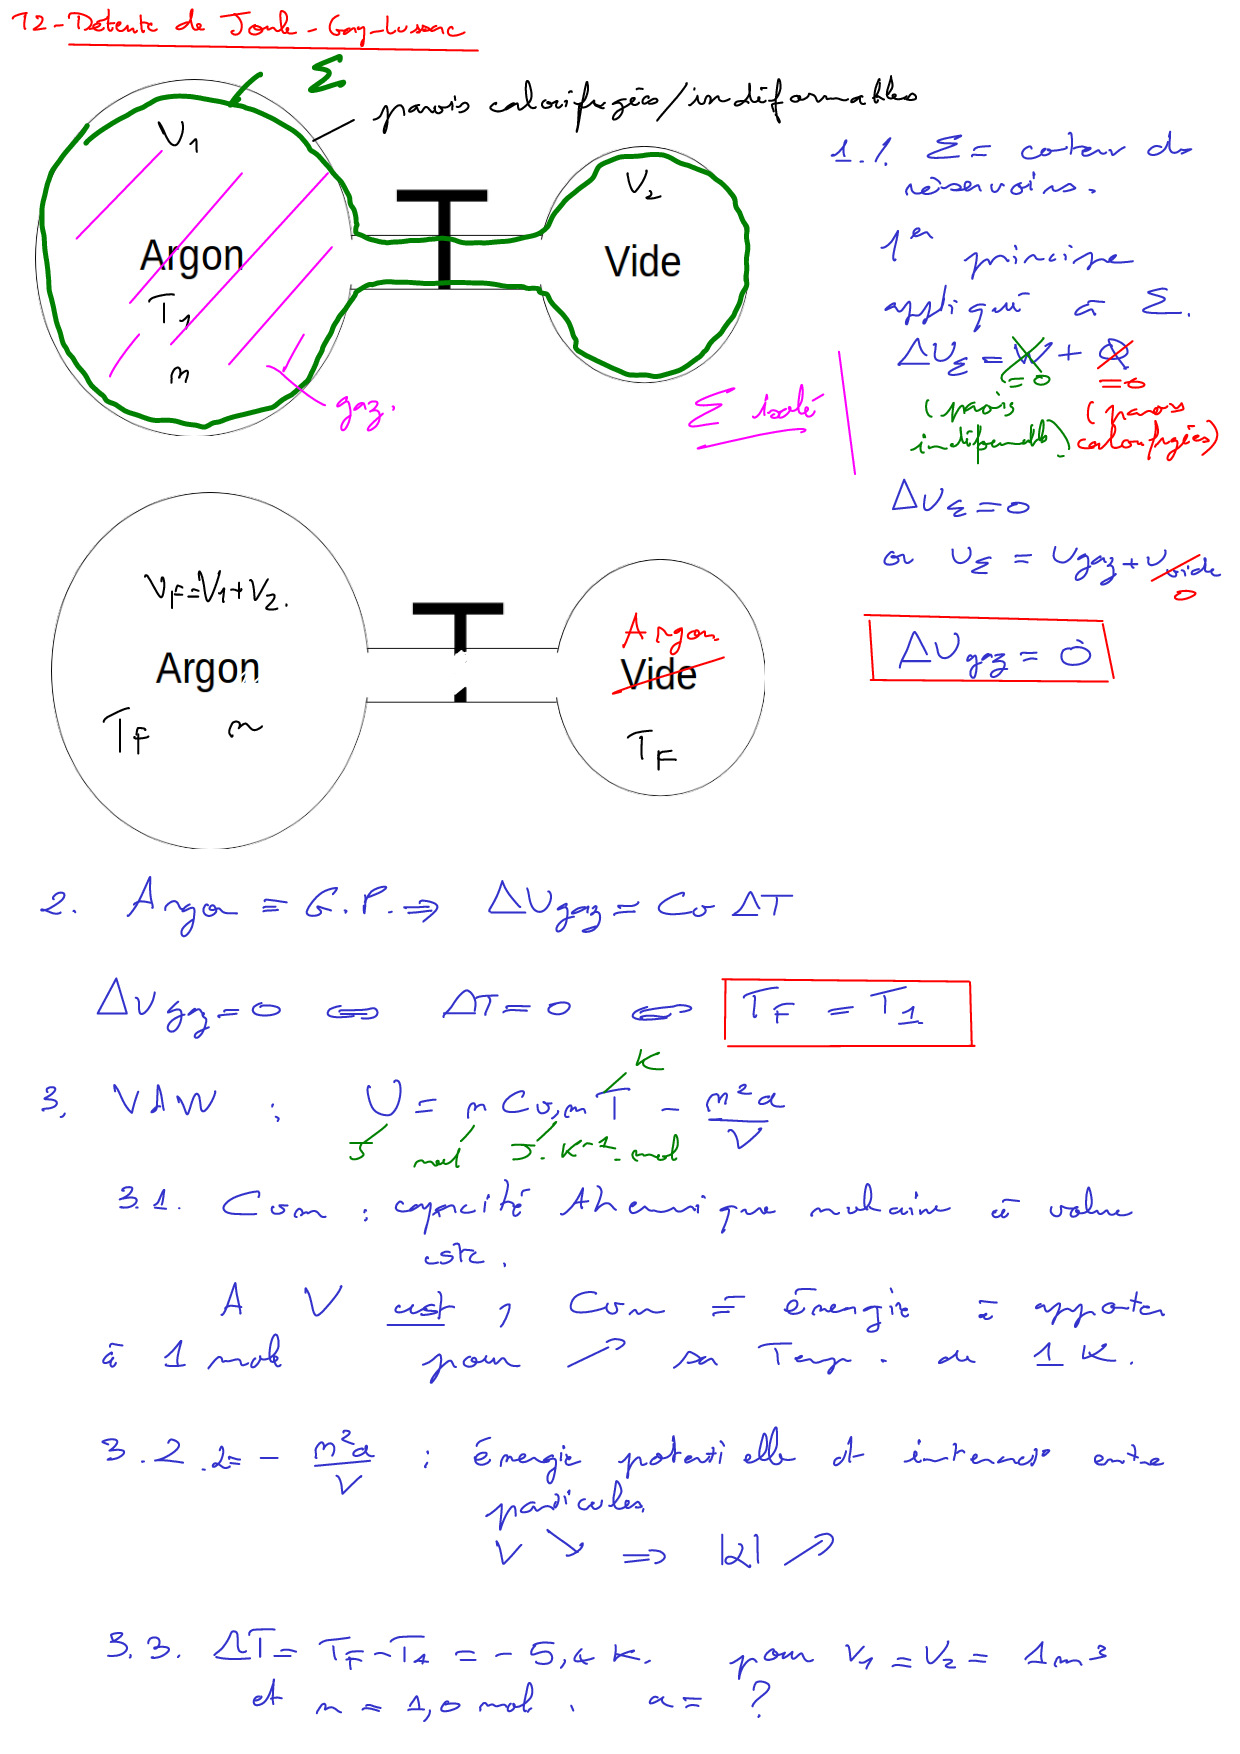 T2-Détente de Joule-Gay-Lussac
Σ
parois calorifugées/indéformables
V1
Argon
T1
n
gaz.
V2
Vide
1.1. Σ = contenu des
réservoirs.
1er principe
appliqué à Σ.
ΔUΣ = W + Q
=0 =0
(parois indéformables)
(parois calorifugées)
Σ isolé
ΔUΣ = 0
or UΣ = Ugaz + Uvide
0
ΔUgaz = 0
VF=V1+V2.
Argon
TF n
Argon
Vide
TF
2. Argon = G.P. ⇒ ΔUgaz = Cv ΔT
ΔUgaz = 0 ⇔ ΔT = 0 ⇔ TF = T1
K
3. VAW : U = n Cv,m T - n²a/V
J mol J.K-1.mol
3.1. Cvm : capacité thermique molaire à volume
cste.
A V cst, Cvm = énergie à apporter
à 1 mole pour ↗ sa Temp. de 1 K.
3.2. 2= - n²a/V : énergie potentielle d' interact° entre
particules.
V ↘ ⇒ |2| ↗
3.3. ΔT = TF-T1 = -5,4 K. pour V1 = V2 = 1m3
et n = 1,0 mol. a = ?